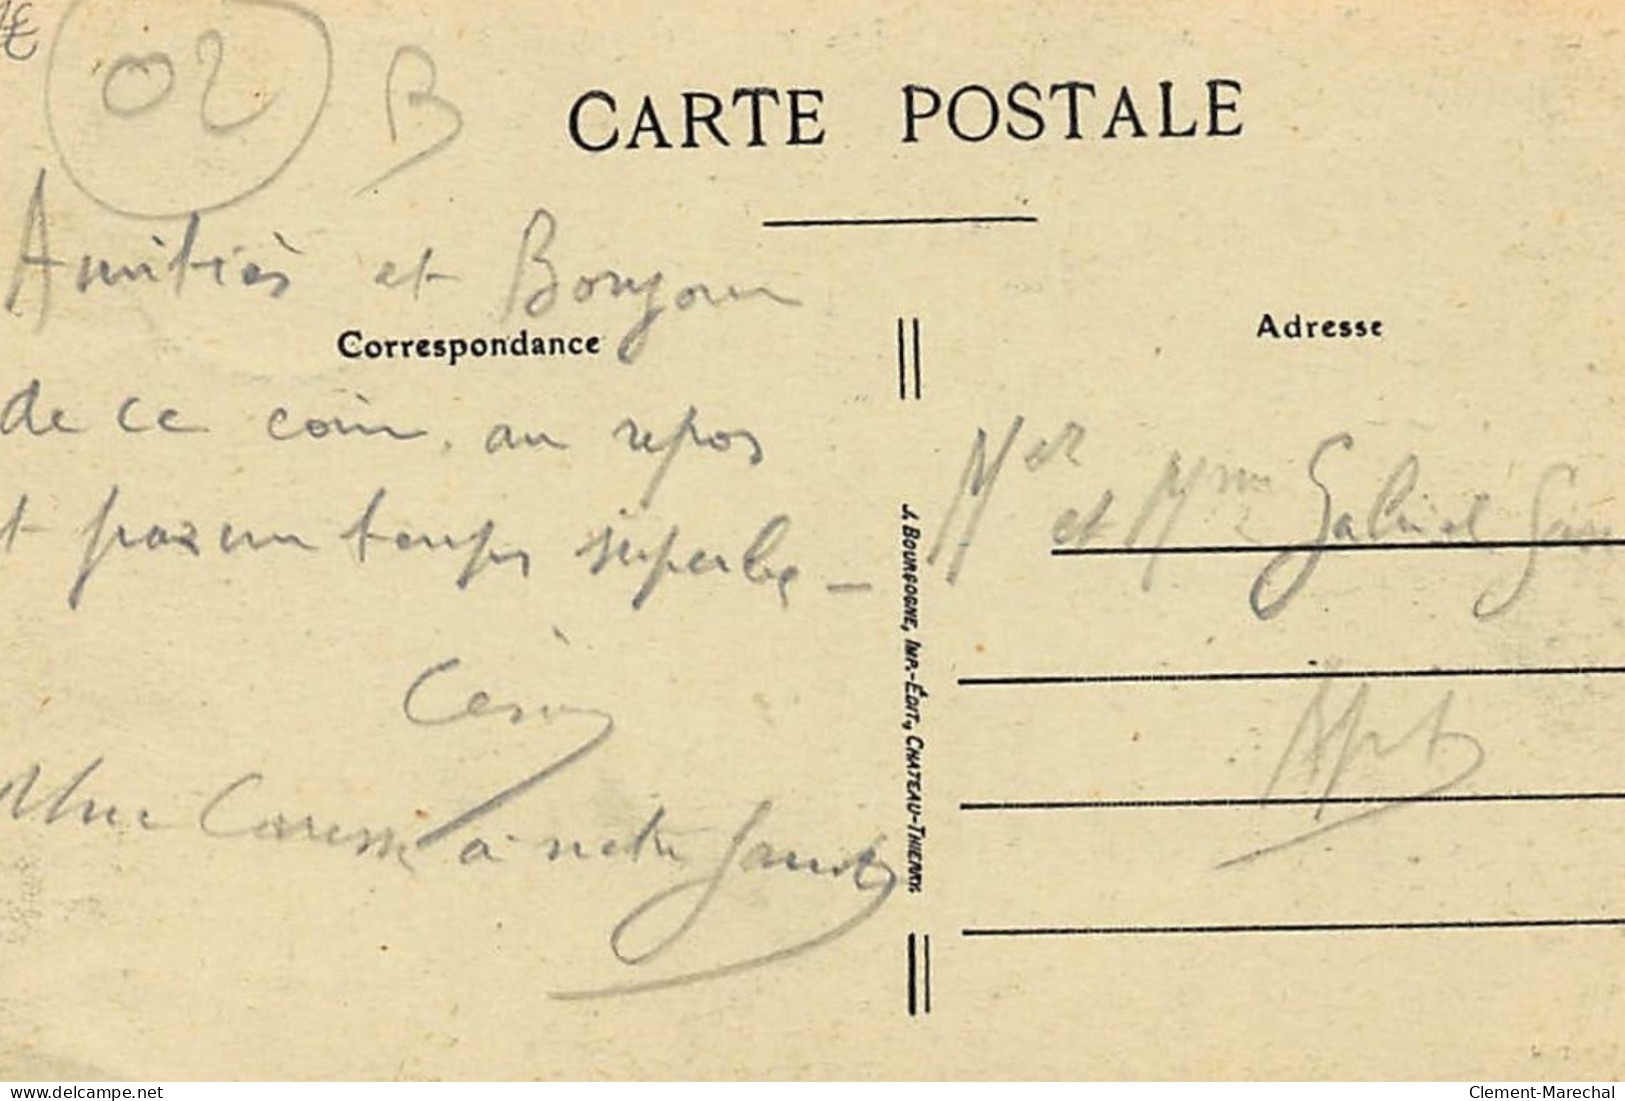 02 B
CARTE POSTALE
Amitiés et Bonjour
Correspondance
de ce coin, au repos
et par un temps superbe —
Une Caresse à notre
J. BOURGOGNE, IMP.-ÉDIT., CHATEAU-THIERRY.
Adresse
Mer et Mme Gabriel
Apt
delcampe.net
Clement-Marechal